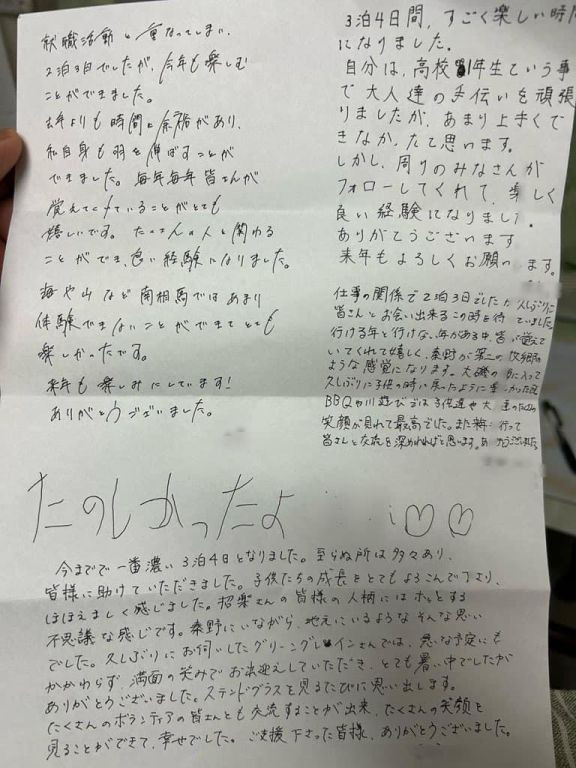 就職活動と重なってしまい、
2泊3日でしたが、今年も楽しむ
ことができました。
去年よりも時間と余裕があり、
私自身も羽を伸ばすことが
できました。毎年毎年皆さんが
覚えてくれていることがとても
嬉しいです。たくさんの人と関わる
ことができ、良い経験になりました。
海や山など南相馬ではあまり
体験できないことができてとても
楽しかったです。
来年も楽しみにしています！
ありがとうございました。
3泊4日間、すごく楽しい時
になりました。
自分は、高校1年生という事
で大人達の手伝いを頑張
りましたが、あまり上手くで
きなかったと思います。
しかし、周りのみなさんが
フォローしてくれて、楽しく
良い経験になりました。
ありがとうございます
来年もよろしくお願 ます。
仕事の関係で2泊3日でしたが 久しぶりに
皆さんとお会い出来るこの時を待っていました。
行ける年と行けない年がある中、皆が覚えて
いてくれて嬉しく、秦野が第二の故郷の
ような感覚になります。大磯の に入って
久しぶりに子供の時に戻ったように
BBQや川遊びでは子供達や大 達の
笑顔が見れて最高でした。また 行って
皆さんと交流を深めれればと思います。
たのしかったよ
♡♡
今までで一番濃い3泊4日となりました。至らぬ所は多々あり、
皆様に助けていただきました。子供たちの成長をとてもよろこんで下さり、
ほほえましく感じました。招楽さんの皆様の人柄にはホッとする
不思議な感じです。秦野にいながら、地元にいるような そんな思い
でした。久しぶりにお伺いしたグリーングレインさんでは、急な予定にも
かかわらず、満面の笑みでお出迎えしていただき、とても暑い中でしたが
ありがとうございました。ステンドグラスを見るたびに思い出します。
たくさんのボランティアの皆さんとも交流することが出来、たくさんの笑顔を
見ることができて、幸せでした。ご支援下さった皆様、ありがとうございました。